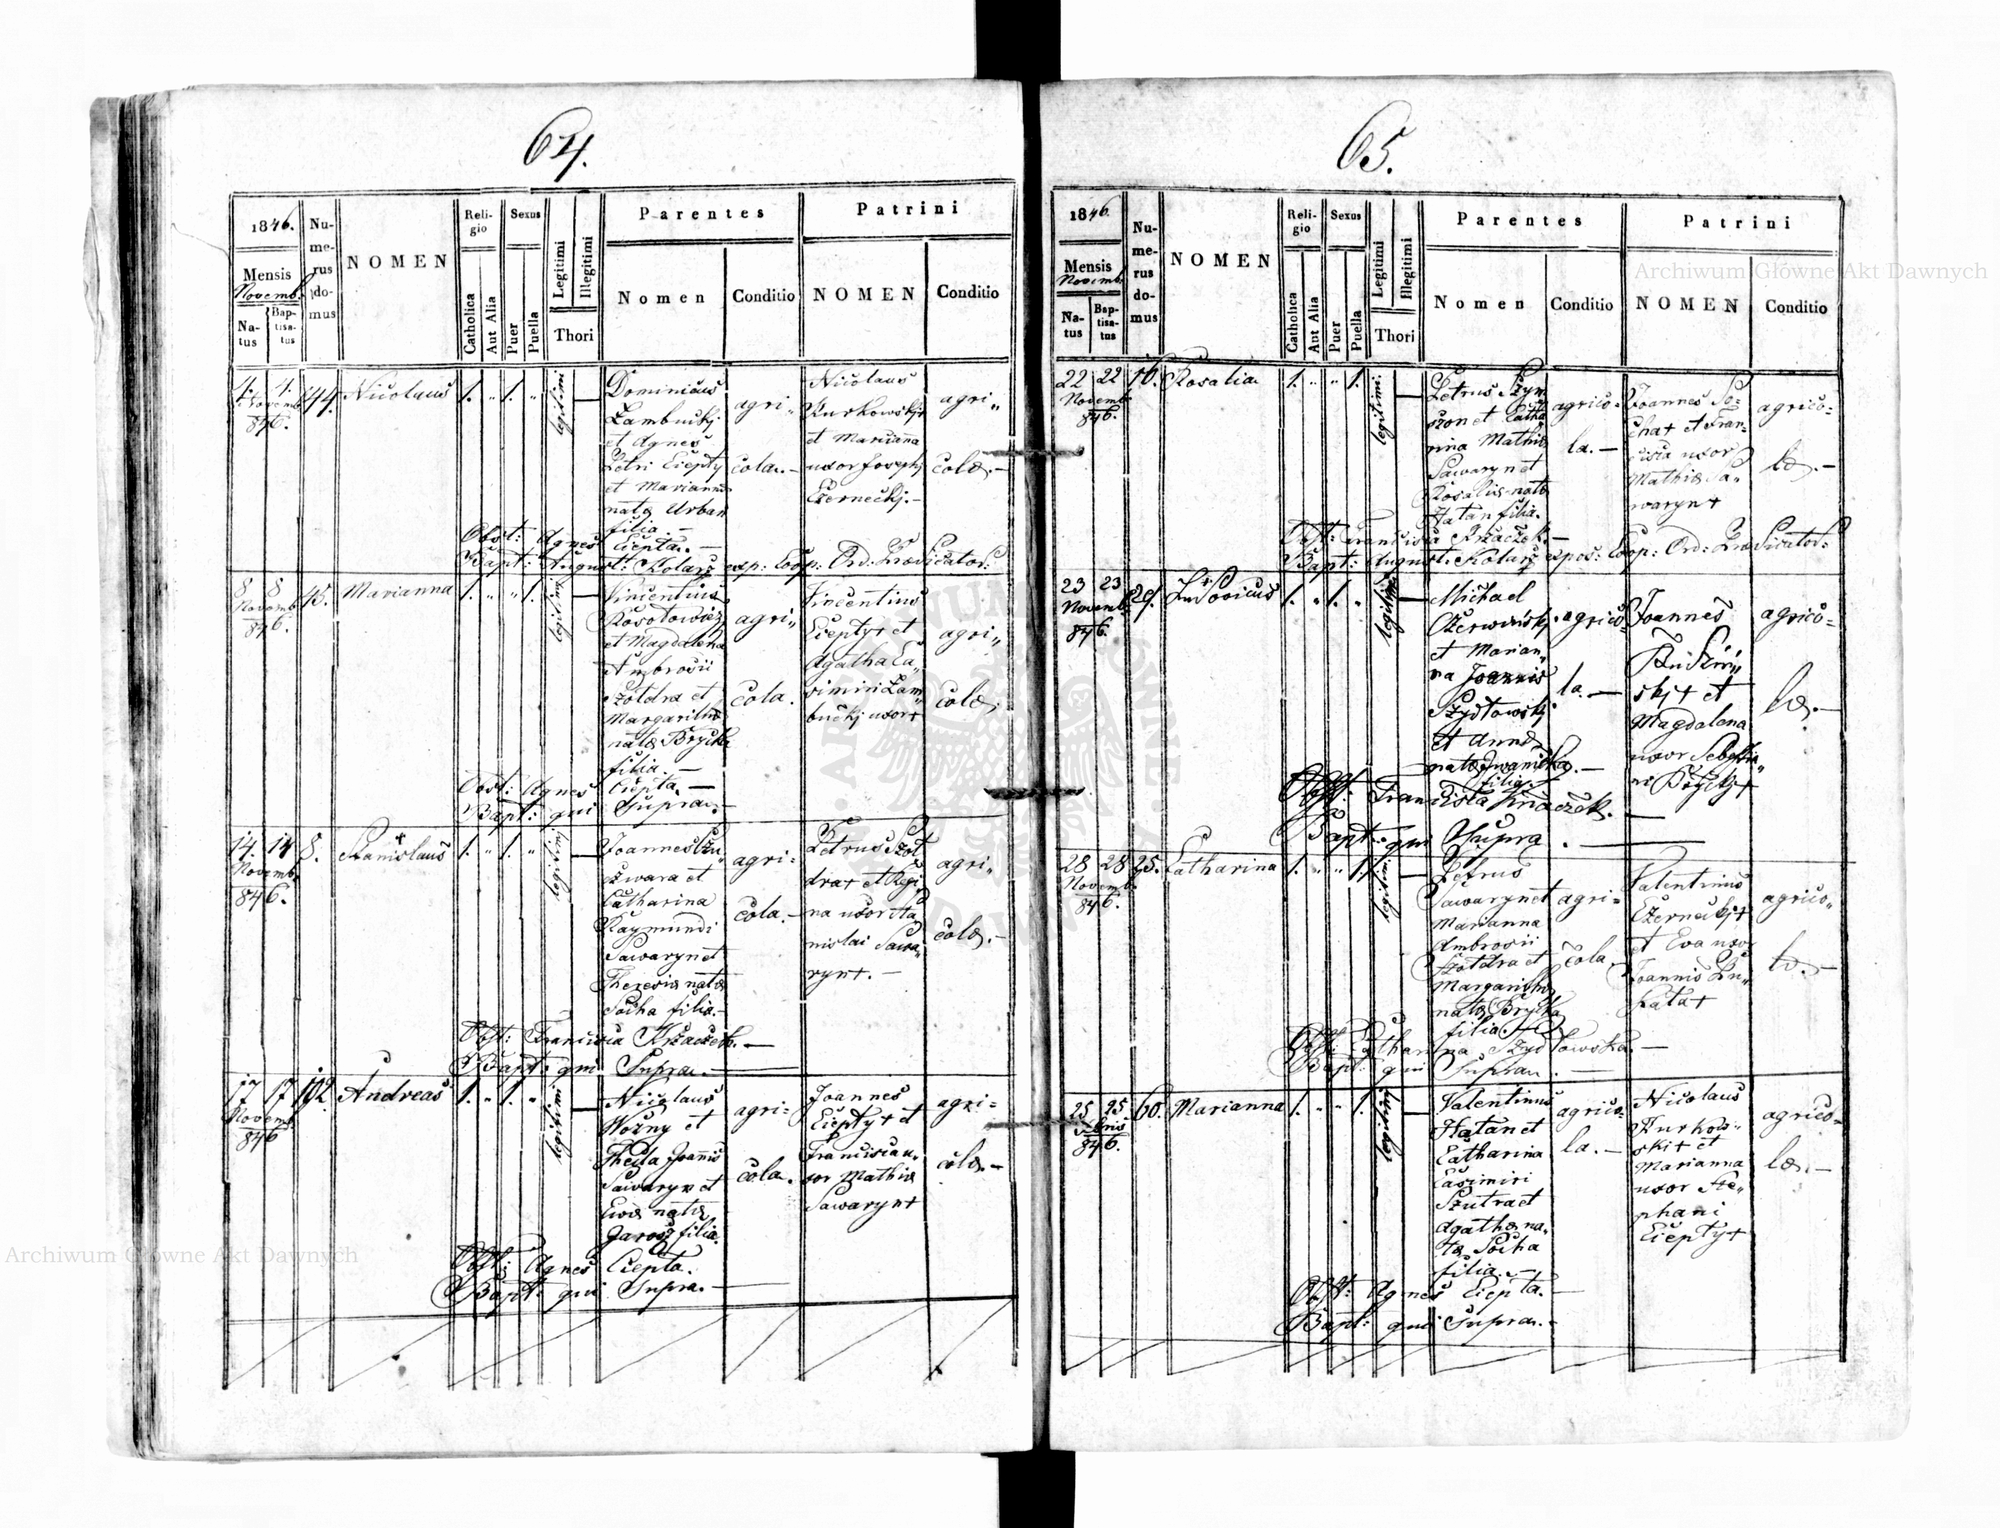 64.
1846.
Mensis
Novemb.
Natus
Baptisatus
Numerus domus
NOMEN
Religio
Catholica
Aut Alia
Sexus
Puer
Puella
Legitimi
Illegitimi
Thori
Parentes
Nomen
Conditio
Patrini
NOMEN
Conditio
1. 1. 144. Nicolaus 1. „ 1. „ legitimi
Novemb.
846.
Dominicus
Lambucki
et Agnes
Petri Ciepły
et Marianna
nata Urban
filia. —
agri„
cola. —
Nicolaus
Kurkowski
et Marianna
uxor Josephi
Czernecki. —
agri„
colæ. —
Obst: Agnes Ciepła. —
Bapt: August: Kolarz exp: Coop: Ord: Prædicator:
8 8 45. Marianna 1. „ „ 1. legitimi
Novemb.
846.
Vincentius
et Magdalena
Ambrosii
Szołdra et
Margaritha
nata Brycka
filia. —
agri„
cola.
Vincentius
Ciepły + et
Agatha Ca„
simiri Lam„
bucki uxor +
agri„
colæ.
Obst: Agnes Ciepła. —
Bapt: qui Supra. —
14. 14 8. Stanislaus + 1. „ 1. „ legitimi
Novemb.
846.
Joannes
et
Catharina
Raymundi
Sawaryn et
Theresia nata
Socha filia. —
agri„
cola. —
Petrus Szoł
dra + et Regi
na uxor Sta
nislai Sawa„
ryn +. —
agri„
colæ. —
Obst: Francisca Krzaczek. —
Bapt: qui Supra. —
17 17 192. Andreas 1. „ 1. „ legitimi
Novemb.
846
Nicolaus
Woźny et
Thecla Joannis
Sawaryn et
Eva nata
Jarosz filia.
agri„
cola.
Joannes
Ciepły + et
Francisca u„
xor Mathiæ
Sawaryn +
agri„
colæ. —
Obst: Agnes Ciepła.
Bapt: qui Supra. —
65.
1846.
Mensis
Novemb.
Natus
Baptisatus
Numerus domus
NOMEN
Religio
Catholica
Aut Alia
Sexus
Puer
Puella
Legitimi
Illegitimi
Thori
Parentes
Nomen
Conditio
Patrini
NOMEN
Conditio
22 22 16. Rosalia 1. „ „ 1. legitimi
Novemb.
846.
Petrus Szym
et Catha
rina Mathiæ
Sawaryn et
Rosaliæ nata
Hatan filia.
agrico„
la. —
Joannes So„
cha + et Fran„
cisca uxor
Mathiæ Sa„
waryn +
agrico„
læ. —
Obst: Francisca Krzaczek. —
Bapt: August: Kolarz expos: Coop: Ord: Prædicator:
23 23 29. Ludovicus 1. „ 1. „ legitimi
Novemb.
846.
Michael
Czerwiński
et Marian„
na Joannis
Szydłowski
et Anna
nata Iwanicka
filia. —
agrico„
la. —
Joannes
ski + et
Magdalena
uxor Sebastia„
ni +
agrico„
læ. —
Obst: Francisca Krzaczek. —
Bapt: qui Supra. —
28 28 25. Catharina 1. „ „ 1. legitimi
Novemb.
846.
Petrus
Sawaryn et
Marianna
Ambrosii
Szołdra et
Margaritha
nata Brycka
filia. —
agri„
cola. —
Valentinus
Czernecki +
et Eva uxor
Joannis
+
agrico„
læ. —
Obst: Catharina Szydłowska. —
Bapt: qui Supra. —
25 25. 60. Marianna 1. „ „ 1. legitimi
846.
Valentinus
Hatan et
Catharina
Casimiri
Szutra et
Agatha na„
ta Socha
filia. —
agrico„
la. —
Nicolaus
Kurkow„
ski + et
Marianna
uxor Ste„
phani
Ciepły +
agrico„
læ. —
Obst: Agnes Ciepła. —
Bapt: qui Supra. —
Archiwum Główne Akt Dawnych
Archiwum Główne Akt Dawnych